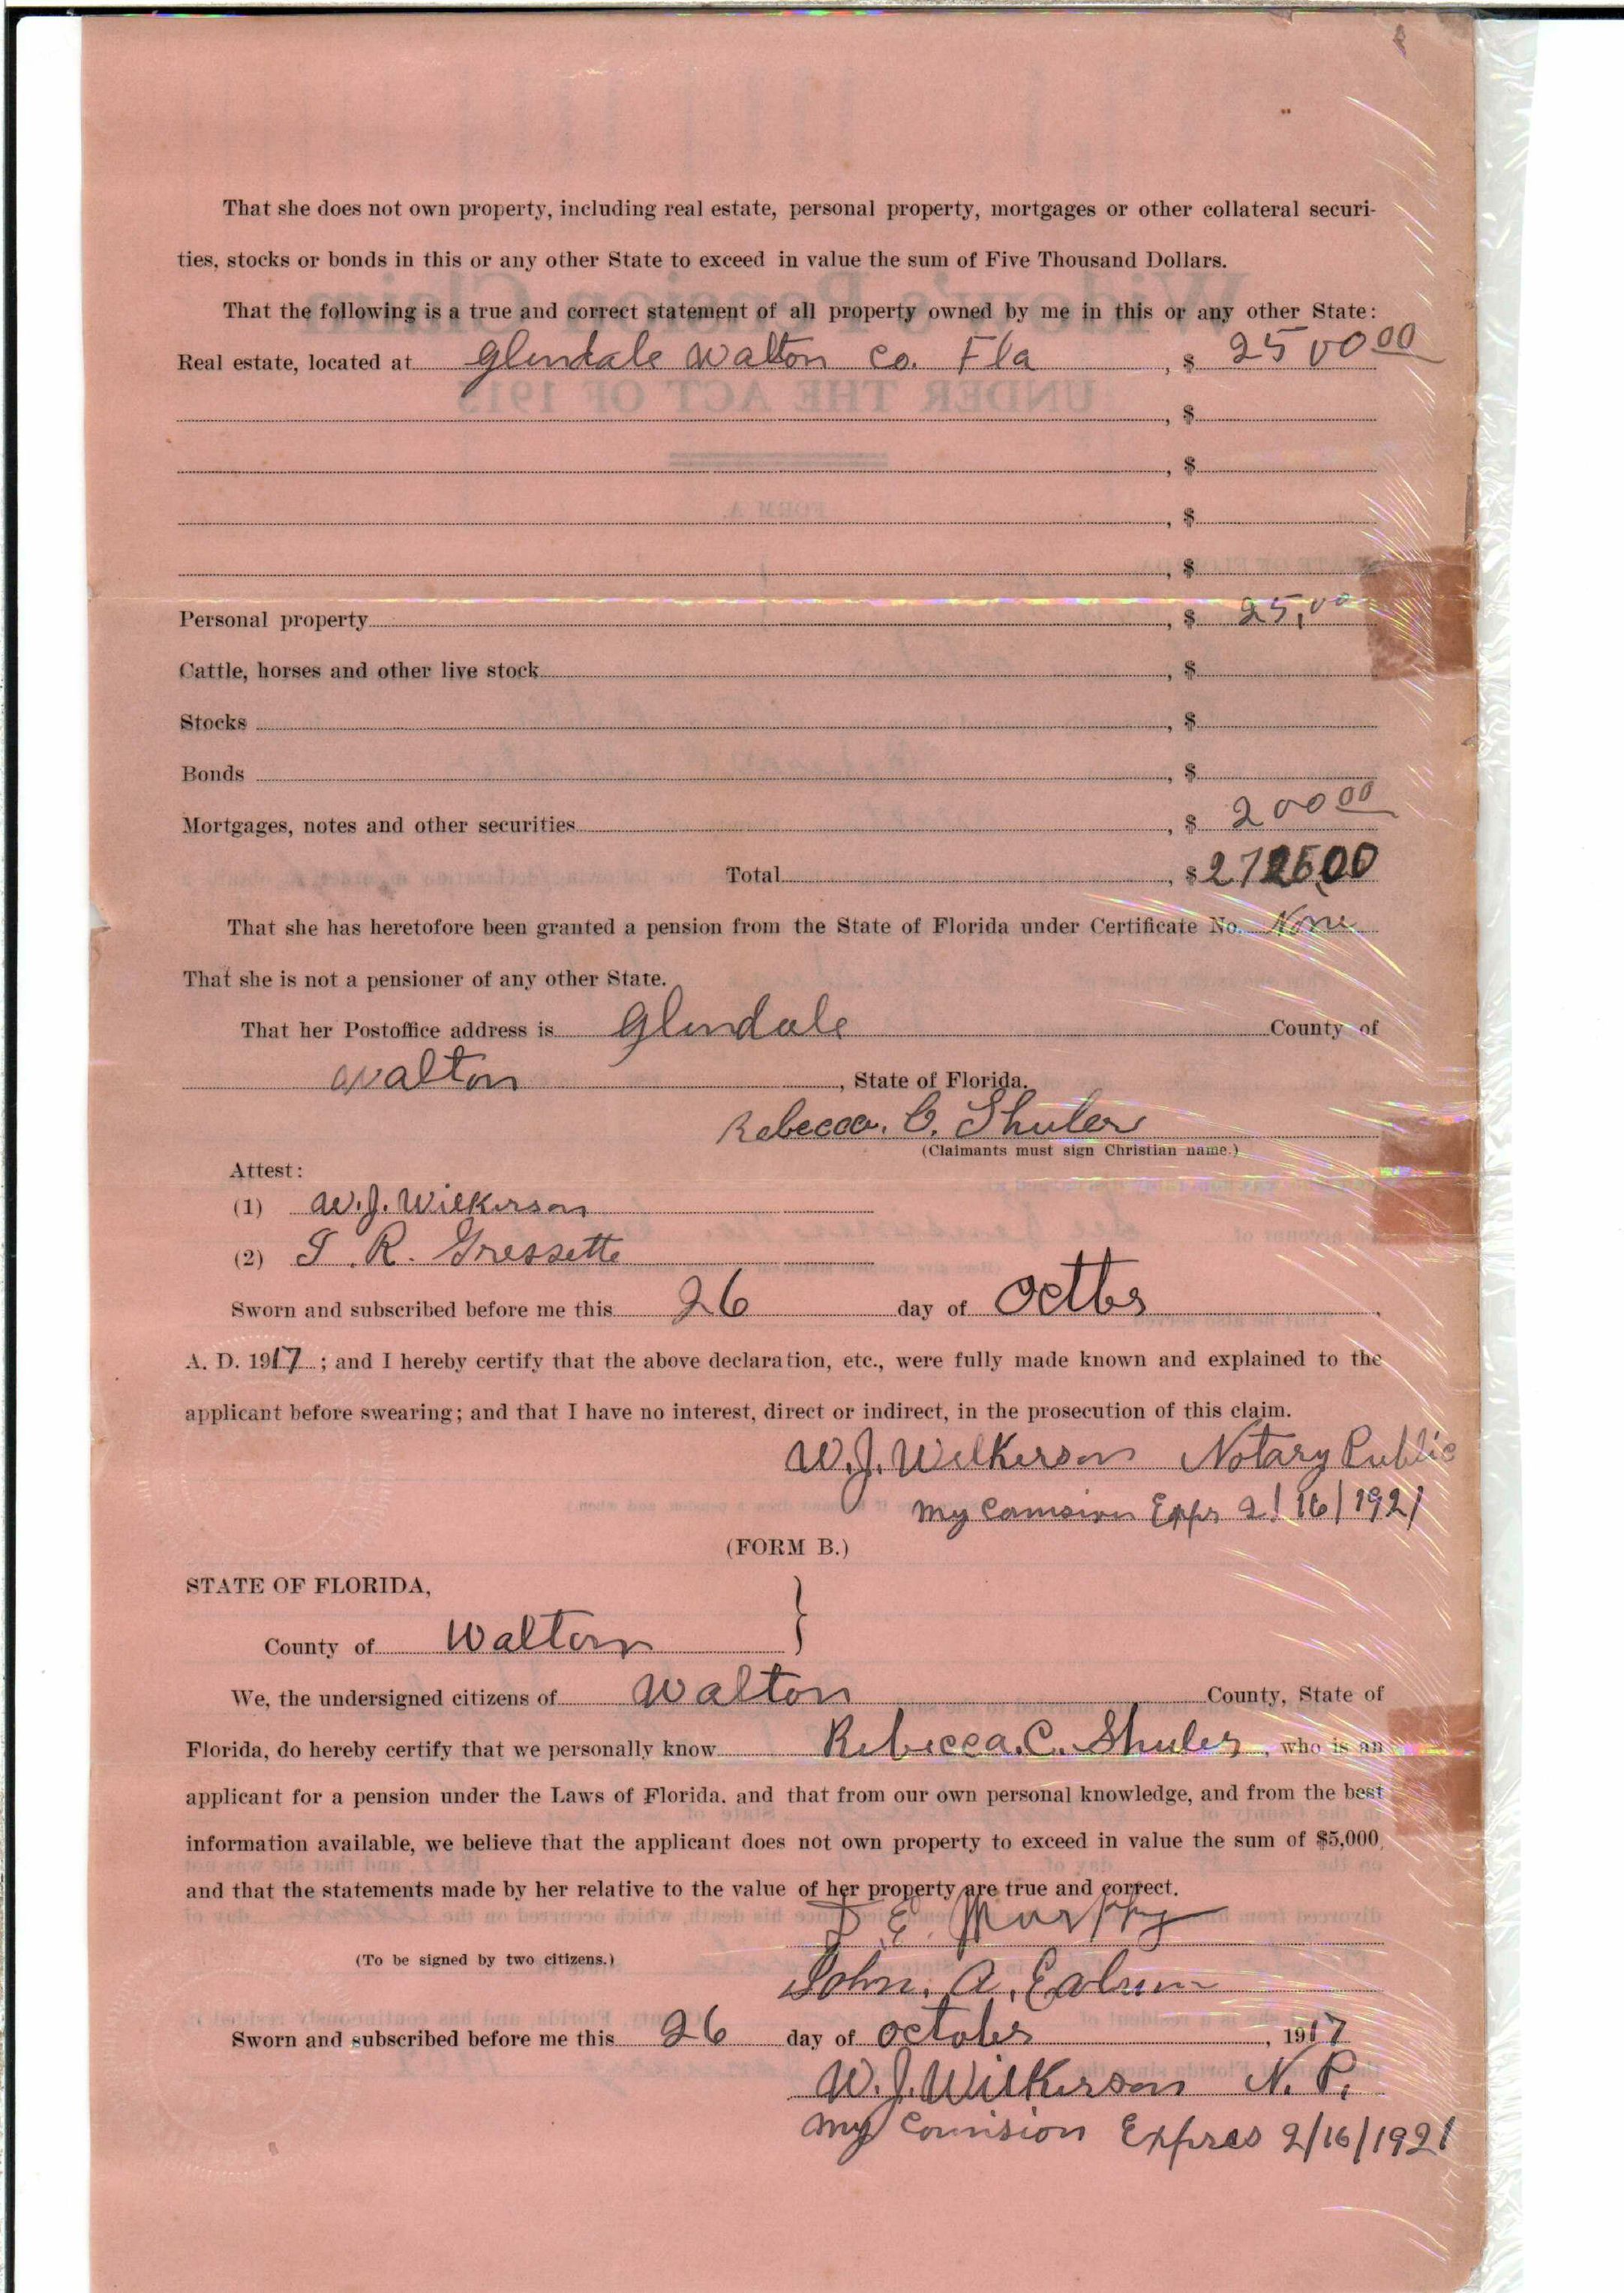 That she does not own property, including real estate, personal property, mortgages or other collateral securi-
ties, stocks or bonds in this or any other State to exceed in value the sum of Five Thousand Dollars.
That the following is a true and correct statement of all property owned by me in this or any other State:
Real estate, located at Glendale Walton Co. Fla, $ 2500 00
, $
, $
, $
, $
Personal property, $ 25,00
Cattle, horses and other live stock, $
Stocks, $
Bonds, $
Mortgages, notes and other securities, $ 200 00
Total, $ 272500
That she has heretofore been granted a pension from the State of Florida under Certificate No. None
That she is not a pensioner of any other State.
That her Postoffice address is Glendale County of
Walton, State of Florida.
Rebecca. C. Shuler
(Claimants must sign Christian name.)
Attest:
(1) W.J. Wilkerson
(2) T. R. Gressette
Sworn and subscribed before me this 26 day of Octbr
A. D. 1917; and I hereby certify that the above declaration, etc., were fully made known and explained to the
applicant before swearing; and that I have no interest, direct or indirect, in the prosecution of this claim.
W.J. Wilkerson Notary Public
My Expr 2/16/1921
(FORM B.)
STATE OF FLORIDA,
County of Walton }
We, the undersigned citizens of Walton County, State of
Florida, do hereby certify that we personally know Rebecca. C. Shuler, who is an
applicant for a pension under the Laws of Florida. and that from our own personal knowledge, and from the best
information available, we believe that the applicant does not own property to exceed in value the sum of $5,000,
and that the statements made by her relative to the value of her property are true and correct.
E. Murphy
(To be signed by two citizens.)
John. A.
Sworn and subscribed before me this 26 day of October, 1917
W.J. Wilkerson N. P.
My Comision Expres 2/16/1921